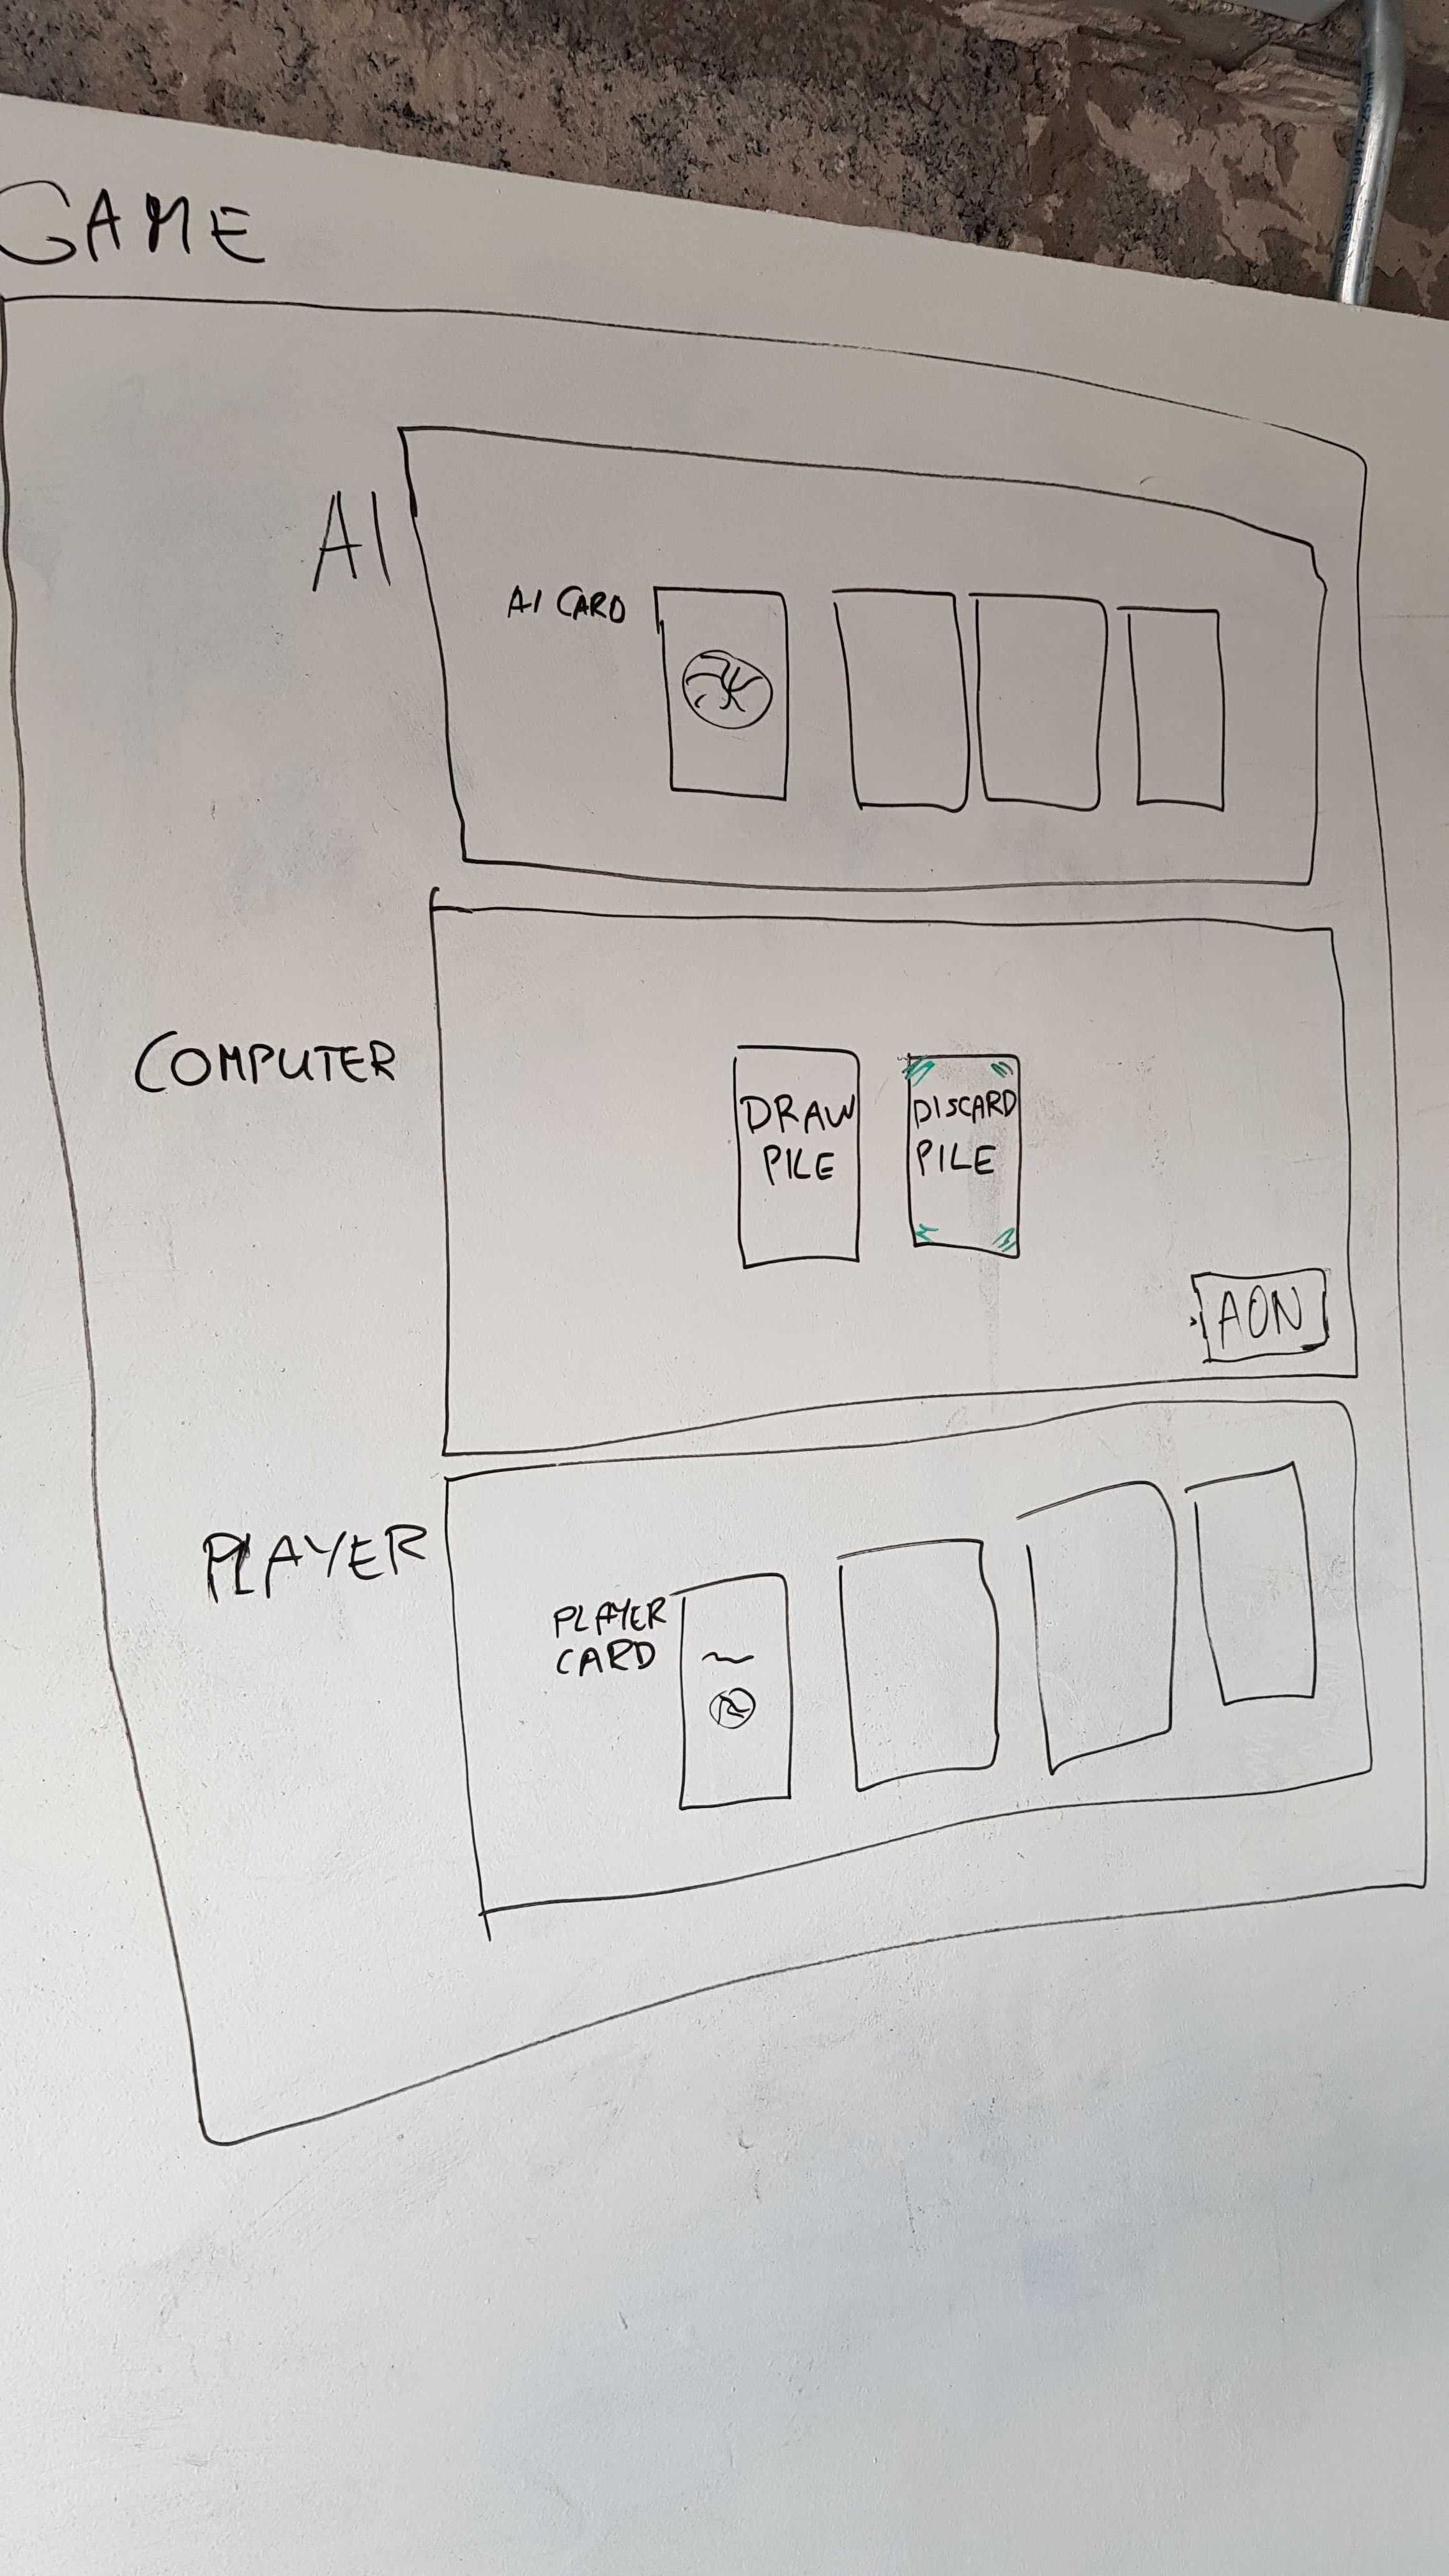 GAME
AI
AI CARD
COMPUTER
DRAW
PILE
DISCARD
PILE
AON
PLAYER
PLAYER
CARD